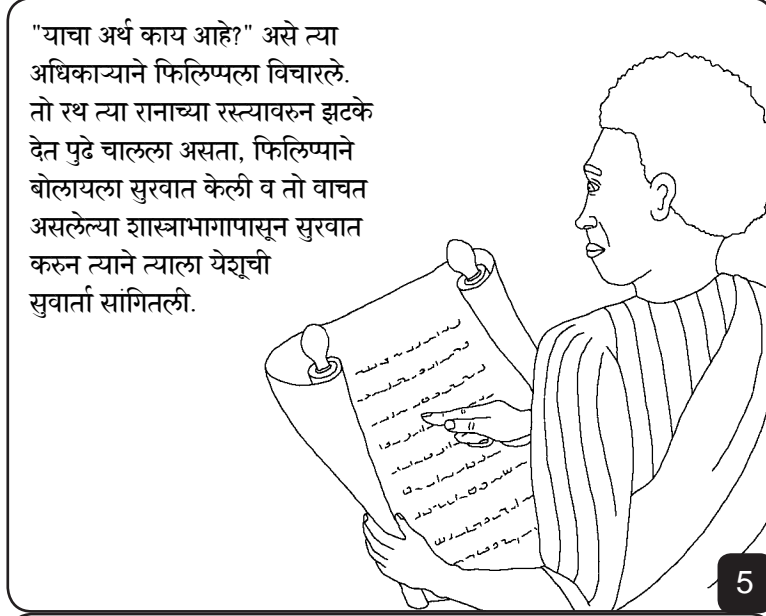 "याचा अर्थ काय आहे?" असे त्या
अधिकाऱ्याने फिलिप्पला विचारले.
तो रथ त्या रानाच्या रस्त्यावरुन झटके
देत पुढे चालला असता, फिलिप्पाने
बोलायला सुरवात केली व तो वाचत
असलेल्या शास्त्राभागापासून सुरवात
करुन त्याने त्याला येशूची
सुवार्ता सांगितली.
5